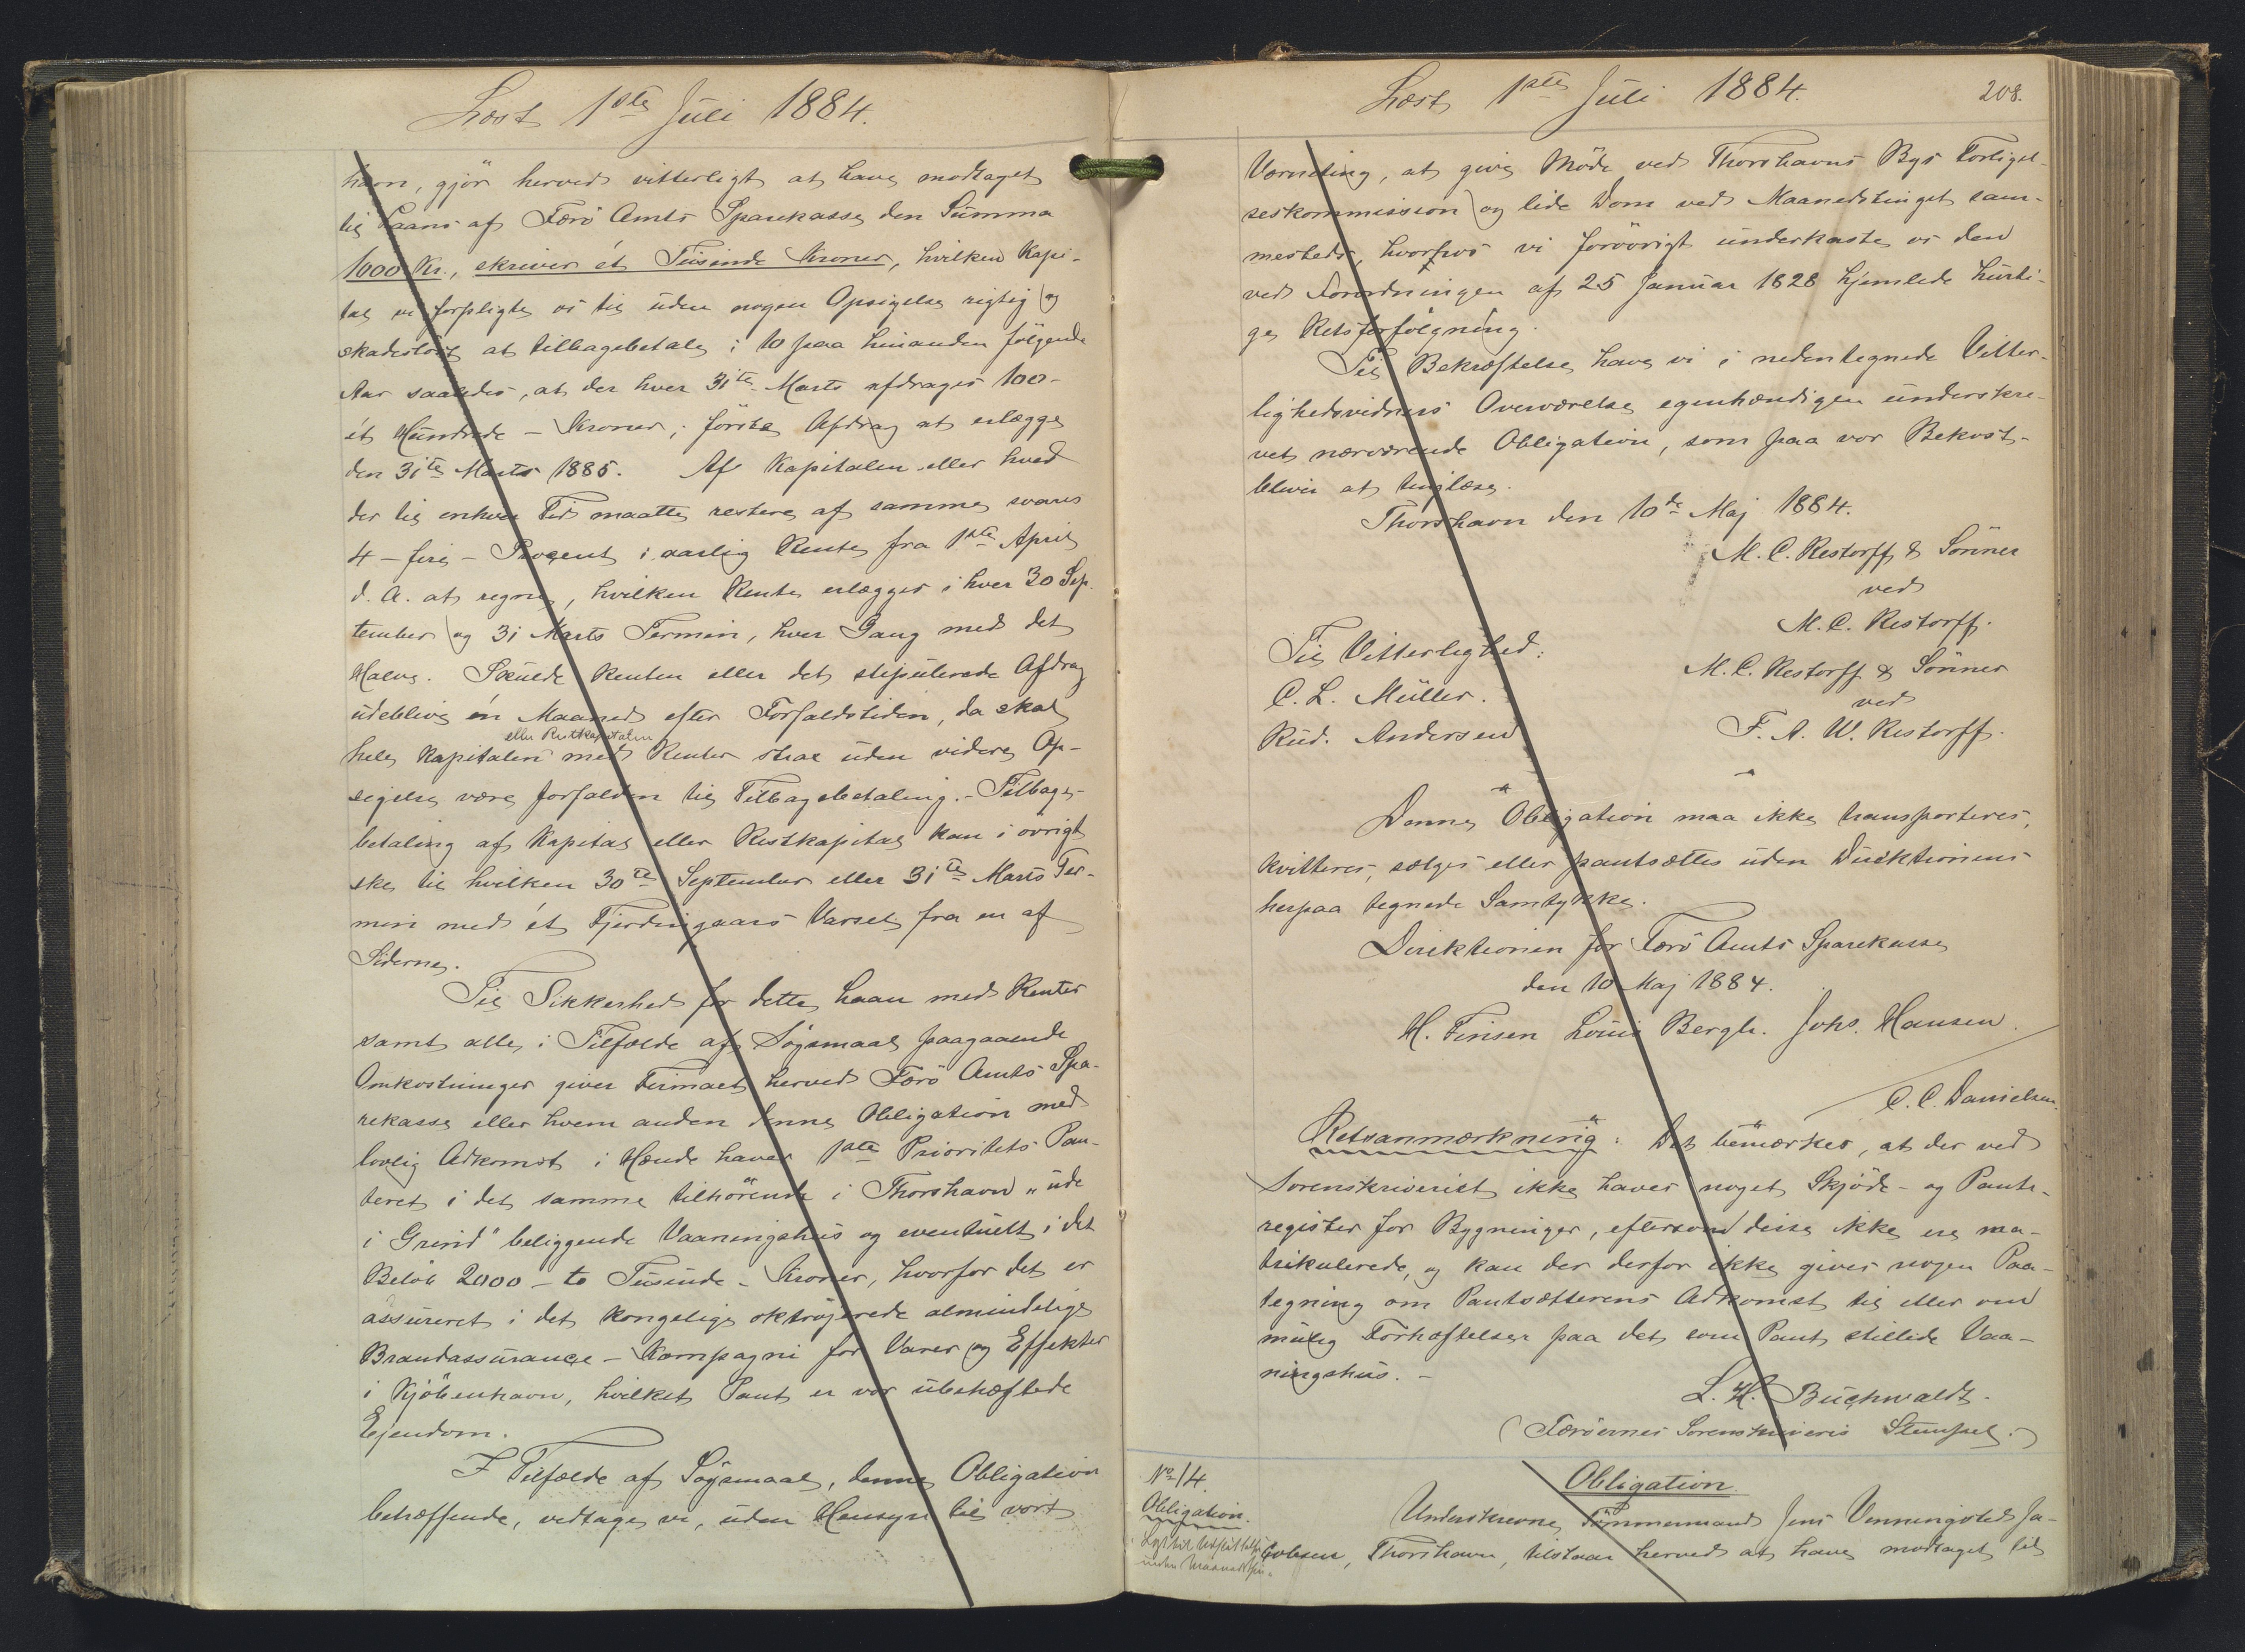 Læst 1ste Juli 1884.
havn, gjör herved vitterligt at have modtaget
til Laans af Færö Amts Sparekasse den Summa
1000 Kr., skriver ét Tusinde Kroner, hvilken Kapi-
tal vi forpligte os til uden nogen Opsigelse rigtig og
skadeslöst at tilbagebetale i 10 paa hinanden fölgende
Aar saaledes, at der hver 31te Marts afdrages 100-
ét Hundrede - Kroner, förste Afdrag at erlægge
den 31te Marts 1885. Af Kapitalen eller hvad
der til enhver Tid maatte restere af samme svares
4 - fire - Procent i aarlig Rente fra 1ste April
d. A. at regne, hvilken Rente erlægges i hver 30 Sep-
tember og 31 Marts Termin, hver Gang med det
Halve. Skulde Renten eller det stipulerede Afdrag
udeblive én Maaned efter Forfaldstiden, da skal
eller Restkapitalen
hele Kapitalen med Renter strax uden videre Op-
sigelse være forfalden til Tilbagebetaling. - Tilbage-
betaling af Kapital eller Restkapital kan i övrigt
ske til hvilken 30te September eller 31te Marts Ter-
min med ét Fjerdingaars Varsel fra en af
Siderne.
Til Sikkerhed for dette Laan med Renter
samt alle i Tilfælde af Sögsmaal paagaaende
Omkostninger giver Firmaet herved Færö Amts Spa-
rekasse eller hvem anden denne Obligation med
lovlig Adkomst i Hænde haver 1ste Prioritets Pan-
teret i det samme tilhörende i Thorshavn „ude
i Grind" beliggende Vaaningshus og eventuelt i det
Belöb 2000 - to Tusinde - Kroner, hvorfor det er
assureret i det kongelige oktrojerede almindelige
Brandassurance - Kompagni for Varer og Effekter
i Kjöbenhavn, hvilket Pant er vor ubehæftede
Ejendom.
I Tilfælde af Sögsmaal, denne Obligation
betræffende, vedtage vi, uden Hensyn til vort
Læst 1ste Juli 1884.
208.
Værneting, at give Möde ved Thorshavns Bys Forligel-
seskommission og lide Dom ved Maanedstinget sam-
mesteds, hvorhos vi forövrigt underkaste os den
ved Forordningen af 25 Januar 1828 hjemlede hurti-
ge Retsforfölgning.
Til Bekræftelse have vi i nedentegnede Vitter-
lighedsvidners Overværelse egenhændigen underskre-
vet nærværende Obligation, som paa vor Bekost-
bliver at tinglæse.
Thorshavn den 10de Maj 1884.
M. C. Restorff & Sönner
ved
M. C. Restorff.
Til Vitterlighed:
M. C. Restorff & Sönner
C. L. Müller.
ved
Rud. Andersen
F. A. W. Restorff.
Denne Obligation maa ikke transporteres,
kvitteres, sælges eller pantsættes uden Direktionens
herpaa tegnede Samtykke.
Direktionen for Færö Amts Sparekasse
den 10 Maj 1884.
H. Finsen Louis Bergh. Johs. Hansen.
C. C. Danielsen.
Retsanmærkning: Det bemærkes, at der ved
Sorenskriveriet ikke haves noget Skjöde- og Pante-
register for Bygninger, eftersom disse ikke ere ma-
trikulerede, og kan der derfor ikke gives nogen Paa-
tegning om Pantsætterens Adkomst til eller om
mulig Forhæftelser paa det som Pant stillede Vaa-
ningshus. -
L. H. Buchwaldt.
(Færöernes Sorenskriveris Stempel.)
No 14.
Obligation.
Obligation.
Underskrevne Tömmermand Jens Venningsted Ja-
cobsen, Thorshavn, tilstaar herved at have modtaget til